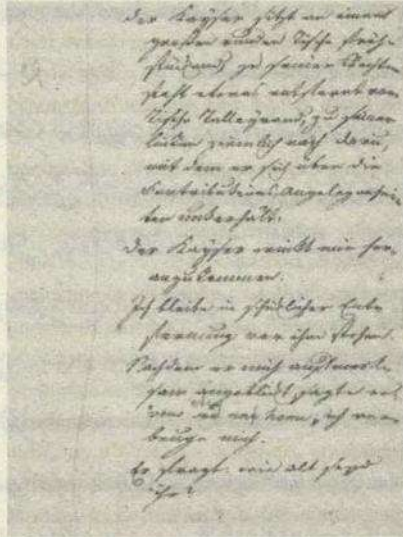 Der Kayser sitzt an einem
großen runden Tische früh-
stückend, zu seiner Rechten
steht etwas entfernt vom
Tische Talleyrand, zu seiner
linken ziemlich nah Daru,
mit dem er sich über die
Contributions-Angelegenhei-
ten unterhält.
Der Kayser winkt mir her-
anzukommen.
Ich bleibe in schicklicher Ent-
fernung vor ihm stehen.
Nachdem er mich aufmerk-
sam angeblickt, sagte er:
vous êtes un homme, ich ver-
beuge mich.
Er fragt: wie alt seyd
ihr?